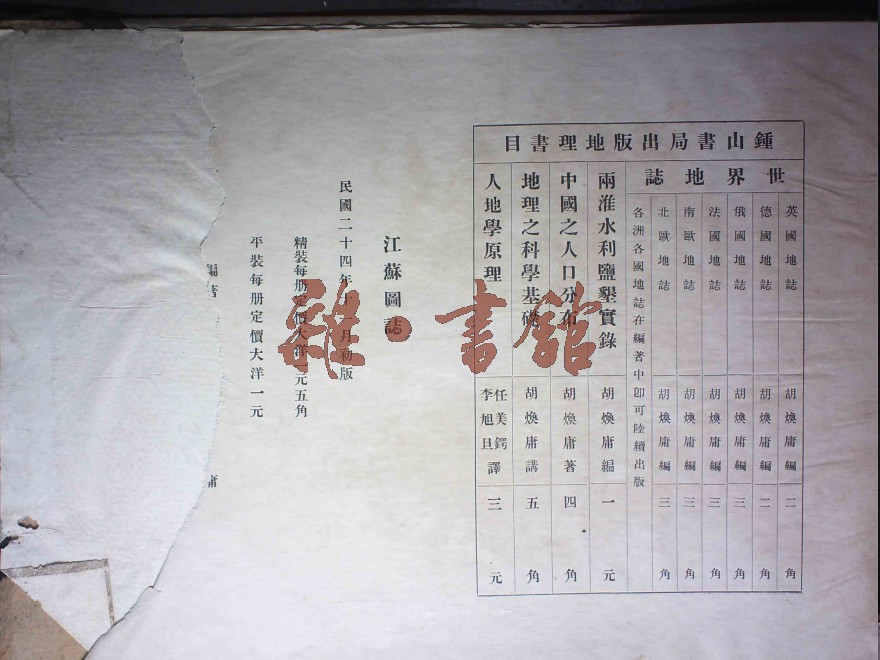 鍾山書局出版地理書目
世界地誌
英國地誌 胡煥庸編 二角
德國地誌 胡煥庸編 二角
俄國地誌 胡煥庸編 三角
法國地誌 胡煥庸編 三角
南歐地誌 胡煥庸編 三角
北歐地誌 胡煥庸編 三角
各洲各國地誌在編著中卽可陸續出版
兩淮水利鹽墾實錄 胡煥庸編 一元
中國之人口分布 胡煥庸著 四角
地理之科學基礎 胡煥庸講 五角
人地學原理 任美鍔 李旭旦 譯 三元
江蘇圖誌
民國二十四年十一月初版
精裝每册定價大洋一元五角
平裝每册定價大洋一元
編著
庸
雜·書館